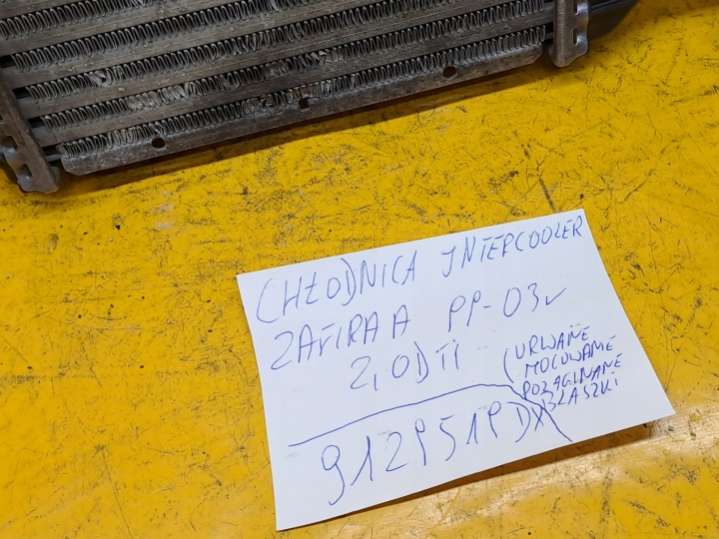 CHŁODNICA INTERCOOLER
ZAFIRA A PP-03r
2,0DTI
(URWANE
MOCOWANIE
POZAGINANE
BLASZKI
9129519DX